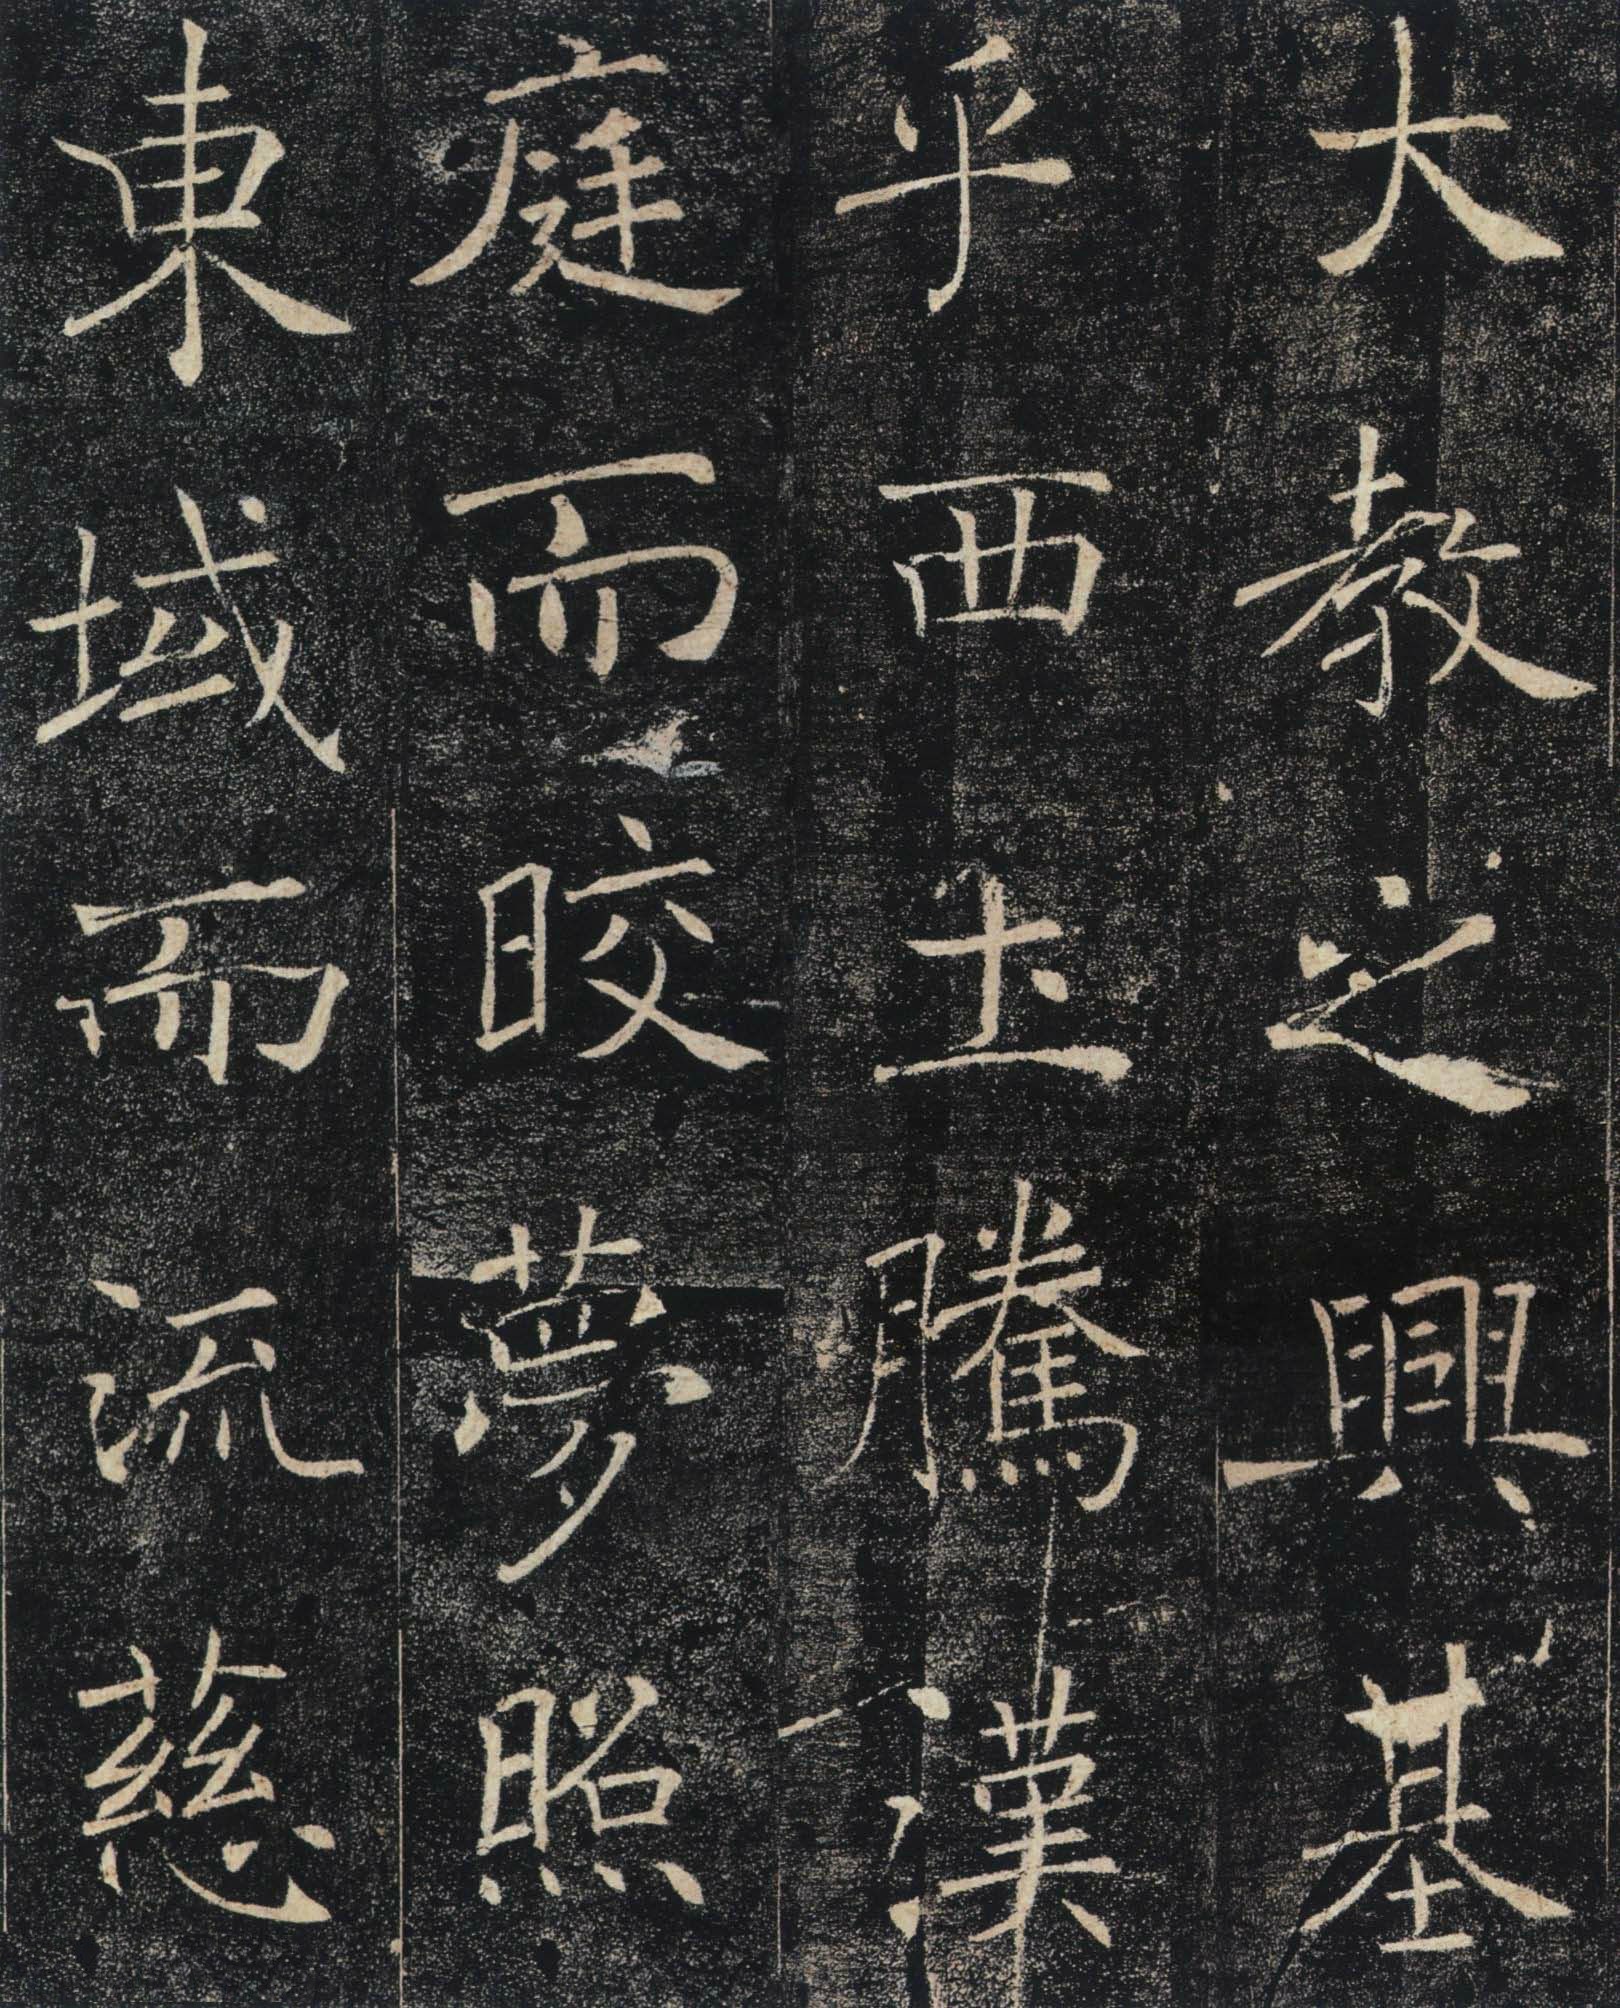 大教之興基
乎西土騰漢
庭而晈夢照
東域而流慈